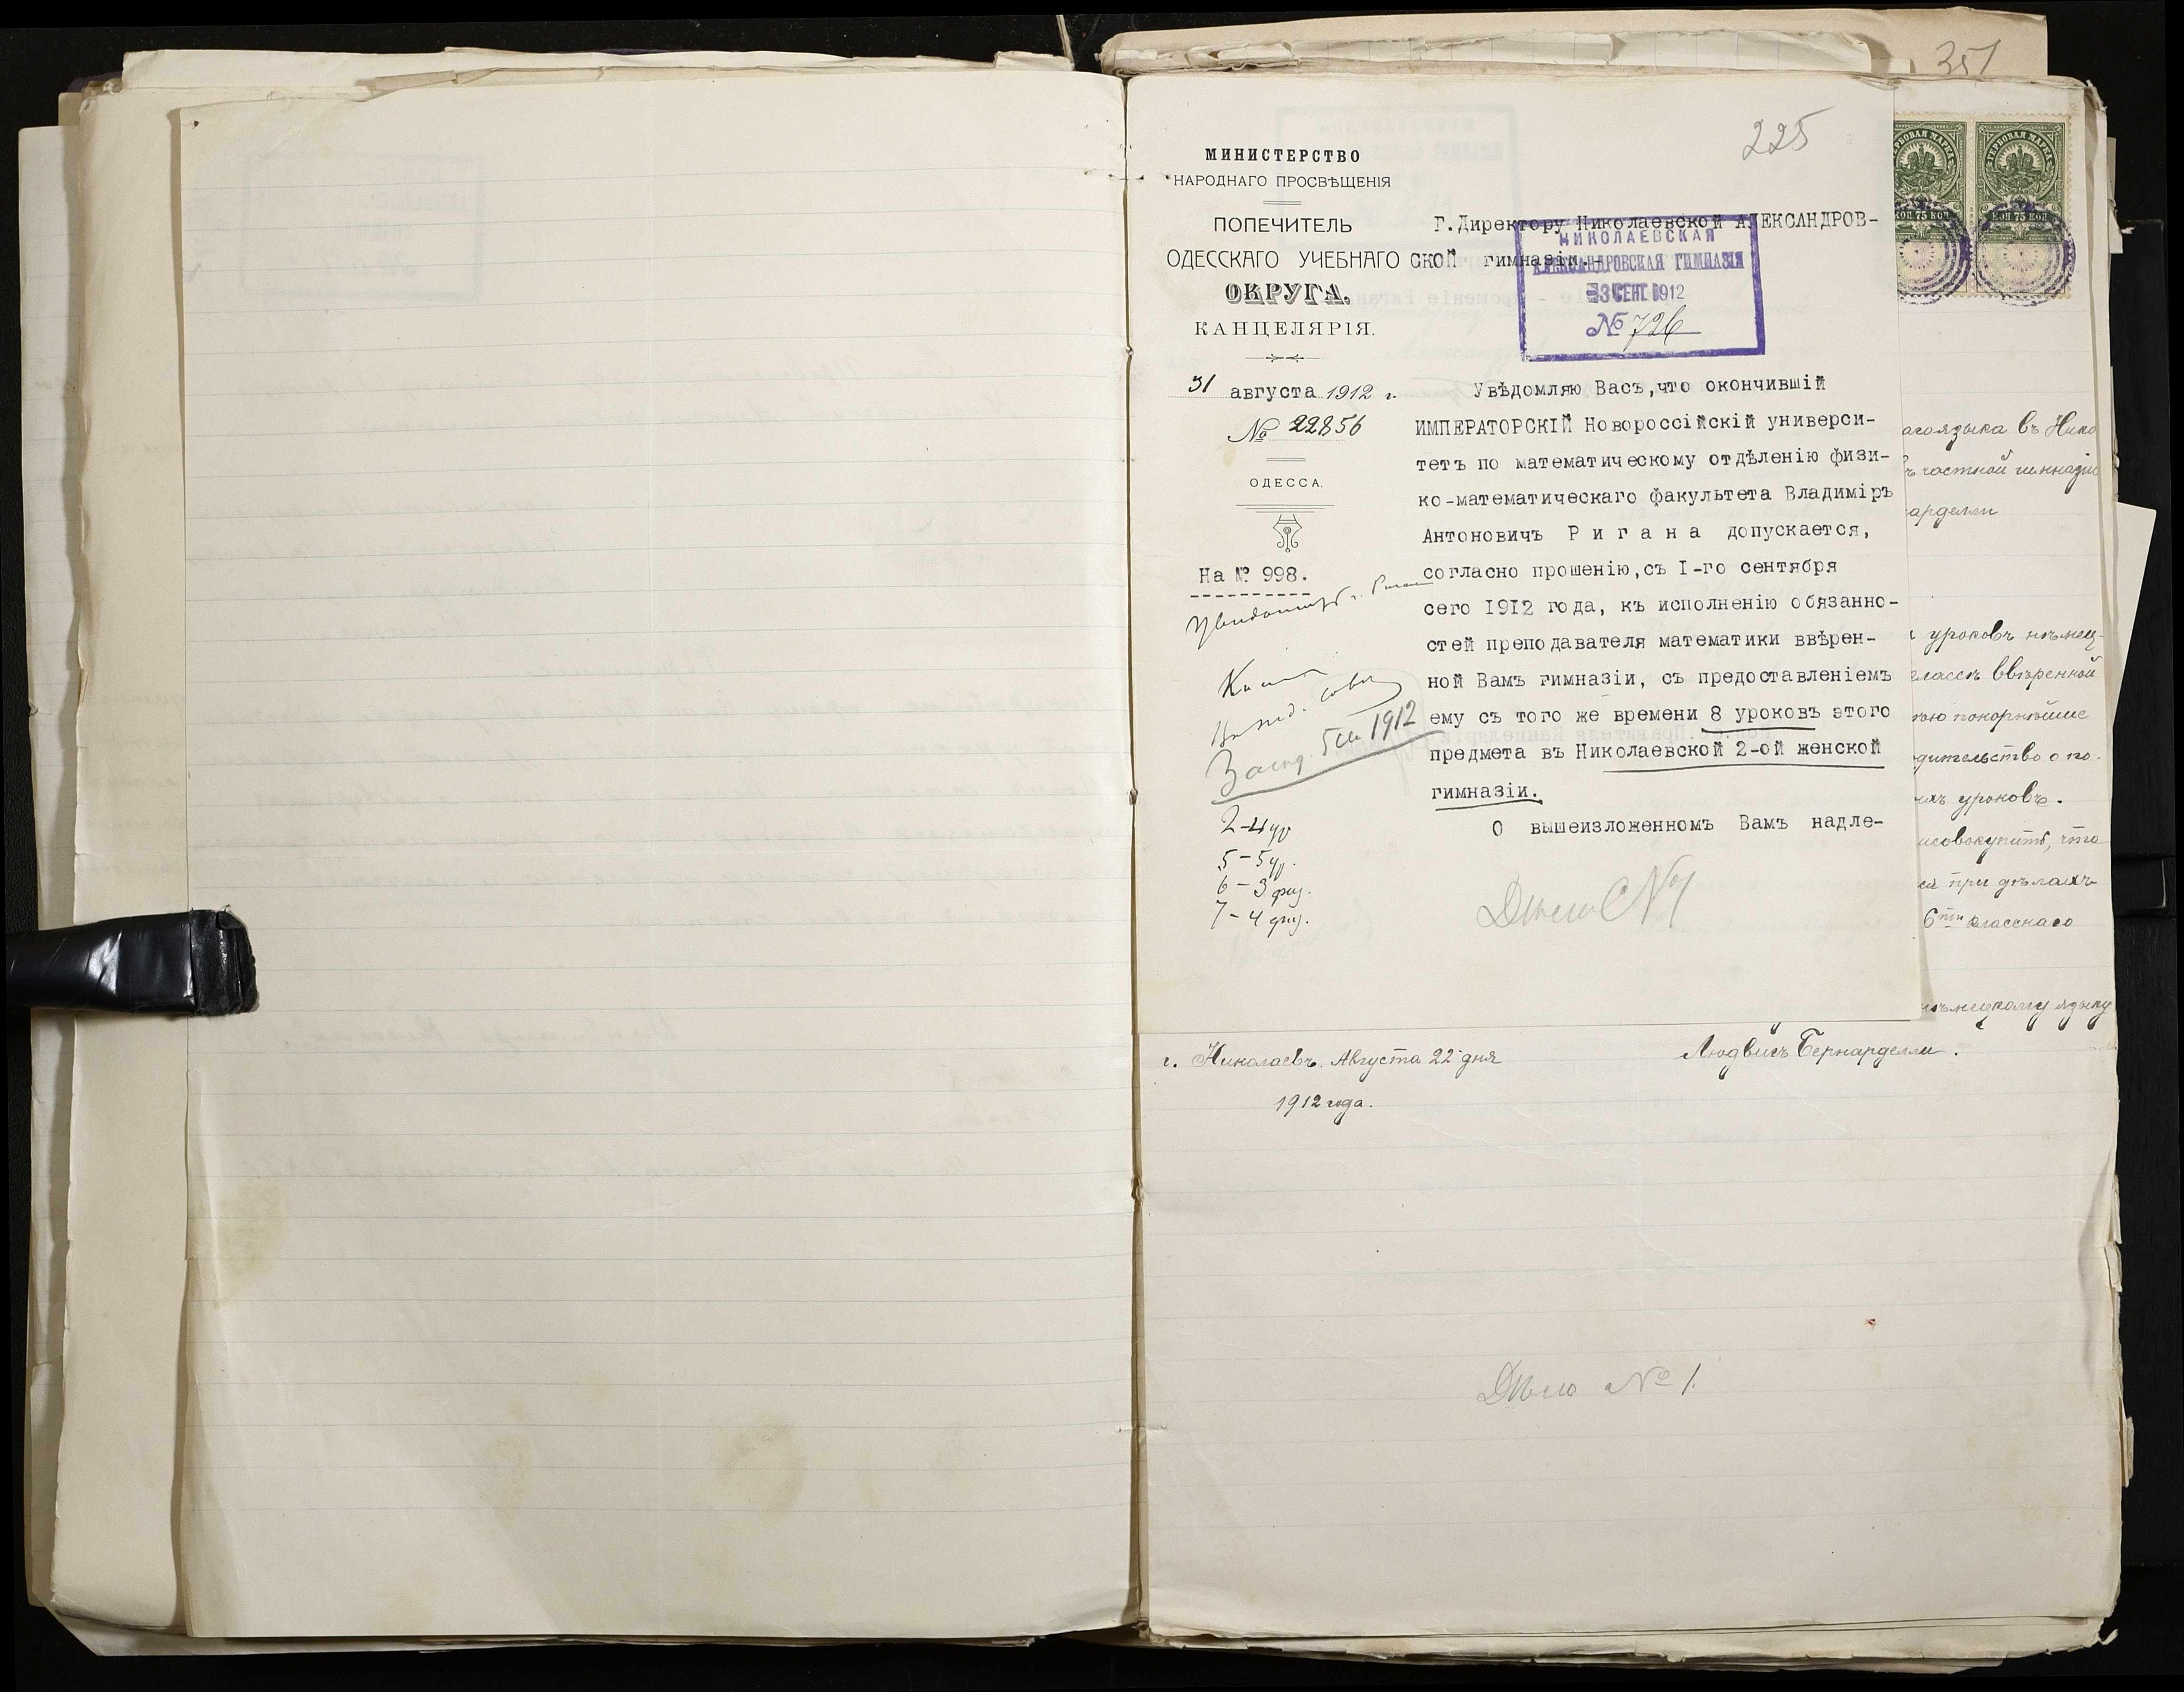 351
225
МИНИСТЕРСТВО
НАРОДНАГО ПРОСВѢЩЕНІЯ
ПОПЕЧИТЕЛЬ
ОДЕССКАГО УЧЕБНАГО
ОКРУГА.
КАНЦЕЛЯРІЯ.
31 августа 1912 г.
№ 22856
ОДЕССА.
На № 998.
Г.Директору Николаевской АЛЕКСАНДРОВ-
ской гимназіи.-
НИКОЛАЕВСКАЯ
АЛЕКСАНДРОВСКАЯ ГИМНАЗІЯ
3 СЕНТ 1912
№ 726
Увѣдомляю Васъ,что окончившій
ИМПЕРАТОРСКІЙ Новороссійскій универси-
тетъ по математическому отдѣленію физи-
ко-математическаго факультета Владиміръ
Антоновичъ Р и г а н а допускается,
согласно прошенію,съ I-го сентября
сего 19I2 года, къ исполненію обязанно-
стей преподавателя математики ввѣрен-
ной Вамъ гимназіи, съ предоставленіемъ
ему съ того же времени 8 уроковъ этого
предмета въ Николаевской 2-ой женской
гимназіи.
О вышеизложенномъ Вамъ надле-
1912
2-4 ур
5-5 ур.
6-3 физ.
7-4 физ.
Дѣло №1
КОП 75 КОП
КОП 75 КОП
агоязыка въ Нико
ъ частной гимназіи
арделли
уроковъ нѣмец-
классѣ ввѣренной
ою покорнѣйше
дительство о по-
уроковъ.
исовокупить, что
ся при дѣлахъ
6ти класснаго
нѣмецкому языку
г. Николаевъ. Августа 22 дня
1912 года.
Людвигъ Бернарделли.
Дѣло № 1.